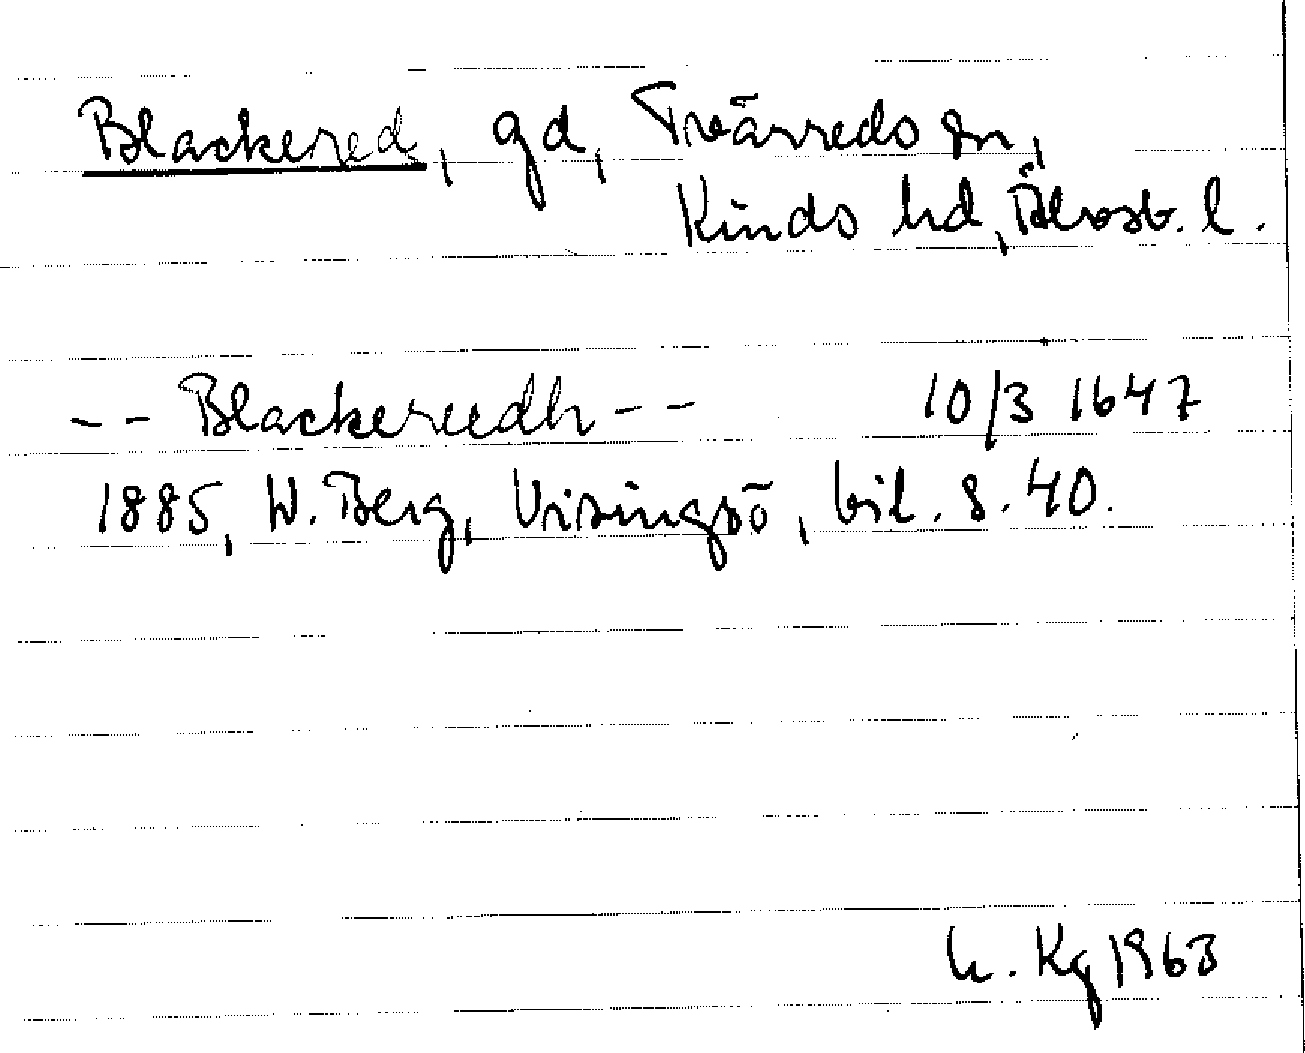 Blackered, gd, Tvärreds sn,
Kinds hd, Älvsb. l.
-- Blackereedh -- 10/3 1647
1885, W. Berg, Visingsö, bil. s. 40.
h. Kg 1963